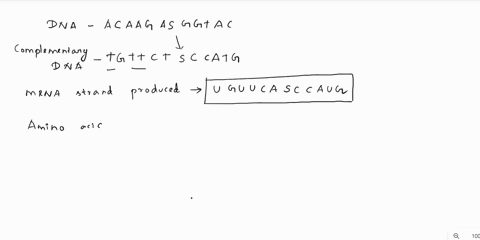 DNA - ACAAG AS GGTAC
Complementary
DNA - TGTTCT SCCATG
mRNA strand produced → UGUUCASCCAUG
Amino acic
100